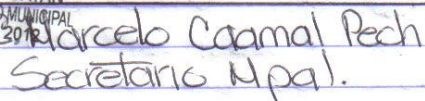 MUNICIPAL
Marcelo Caamal Pech
Secretario Mpal.